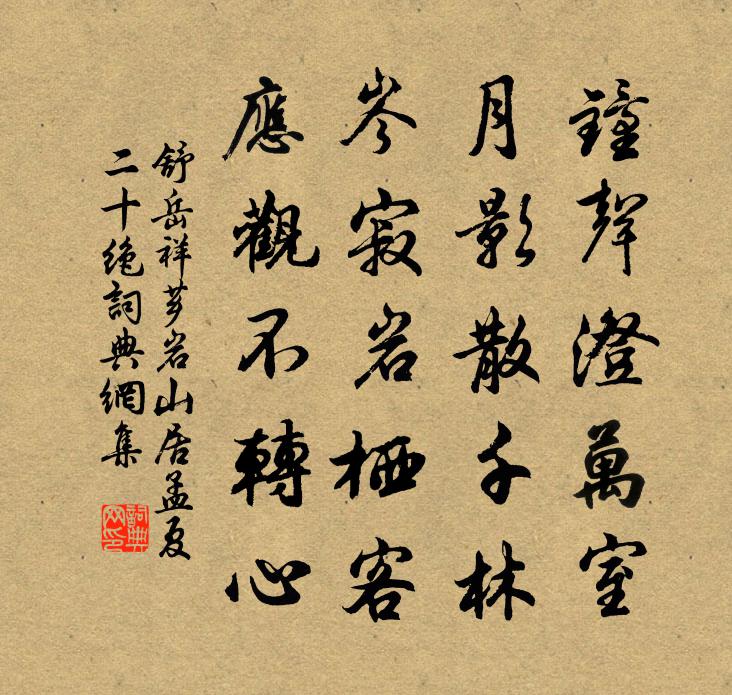 鐘聲澄萬室
月影散千林
岑寂岩栖客
應觀不轉心
舒岳祥芗岩山居孟夏
二十絶詞典網集
詞典
网印